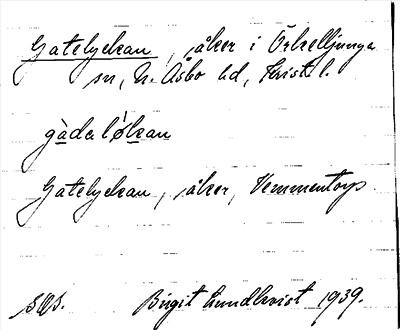 Gatelyckan, åker i Örkelljunga
sn, N. Åsbo hd, Krist. l.
gàdalỳkan
Gatelyckan, åker, Vemmentorp
Birgit Lundkvist 1939.